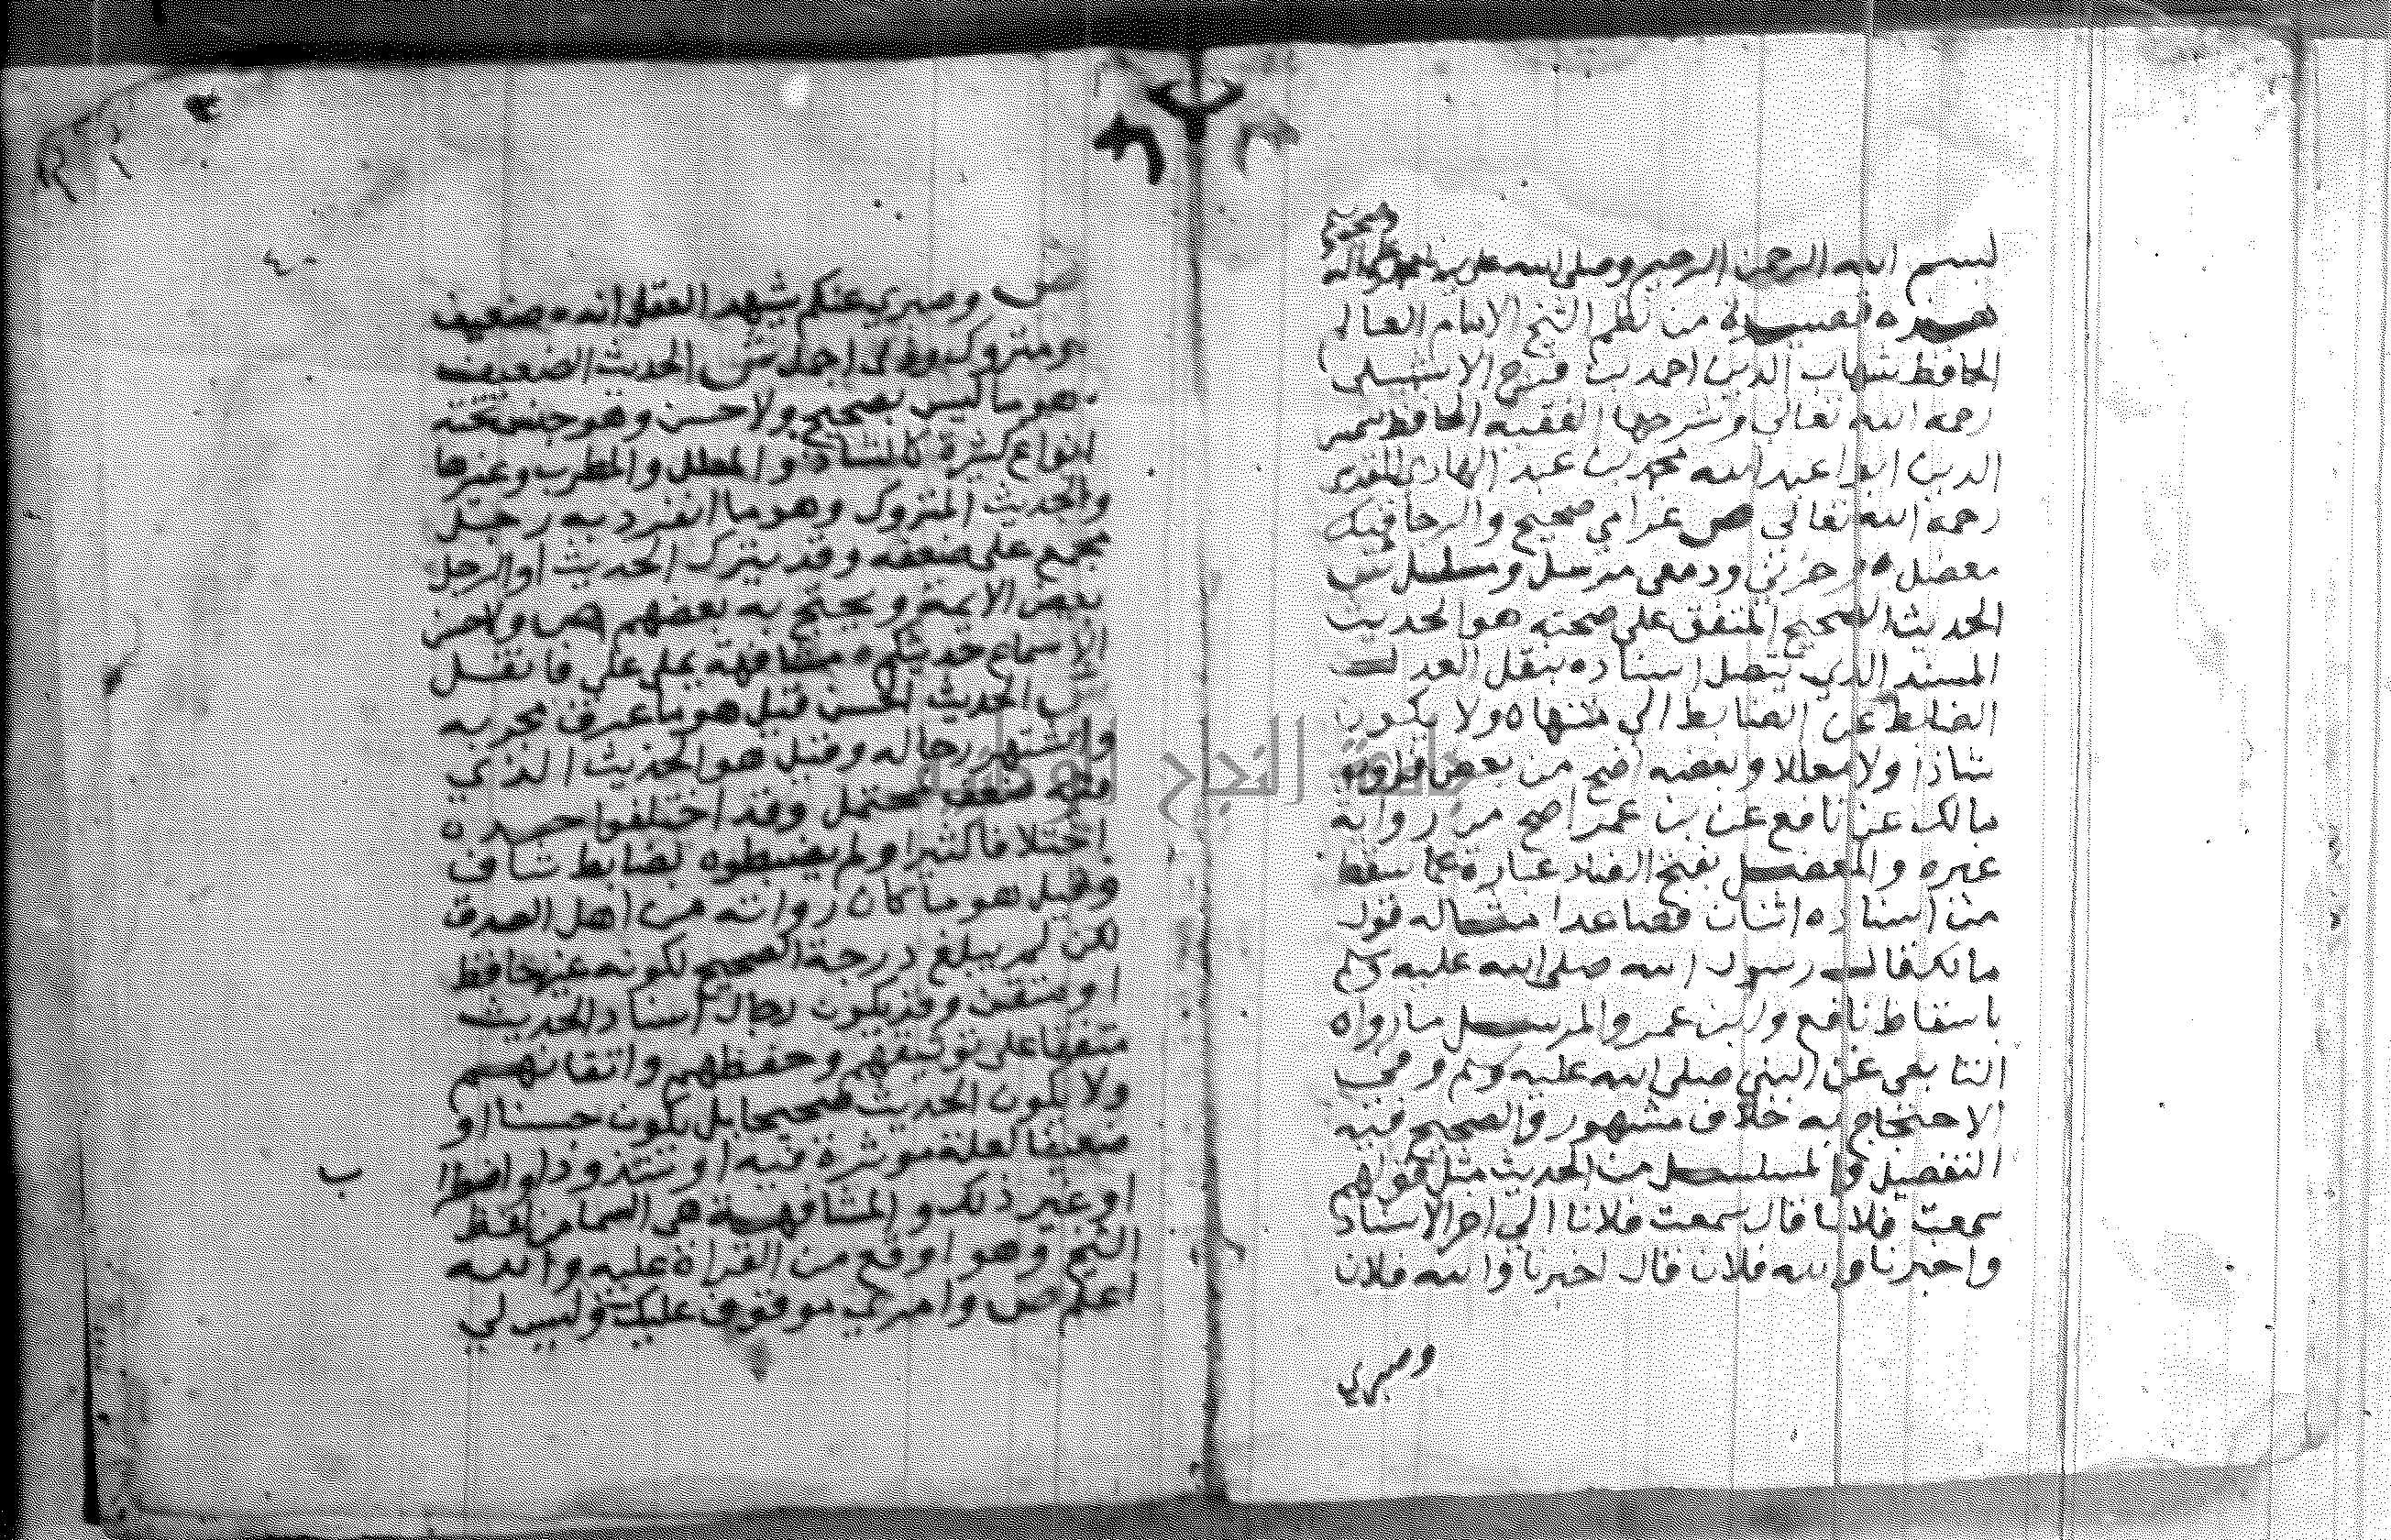 بسم الله الرحمن الرحيم وصلى الله على سيدنا محمد واله
وصحبه
هذه قصيدة من نظم الشيخ الامام العالم
الحافظ شهاب الدين احمد بن فرج الاشبيلي
رحمه الله تعالى وشرحها الفقيه الحافظ شمس
الدين ابوا عبد الله محمد بن عبد الهادي المقدسي
رحمه الله تعالى ص غرامي صحيح والرجا فيك
معضل وحزني ودمعي مرسل ومسلسل ش
الحديث الصحيح المتفق على صحته هو الحديث
المسند الذي يتصل اسناده بنقل العدل
الضابط عن الضابط الى منتهاه ولا يكون
شاذا ولا معللا وبعضه اصح من بعض فرواية
مالك عن نافع عن بن عمر اصح من رواية
غيره والمعضل بفتح الضاد عبارة عما سقط
من اسناده اثنان فصاعدا مثاله قول
مالك قال رسول الله صلى الله عليه وسلم
باسقاط نافع وابن عمر والمرسل ما رواه
التابعي عن النبي صلى الله عليه وسلم وفي
الاحتجاج به خلاف مشهور والصحيح فيه
التفصيل والمسلسل من الحديث مثل قولهم
سمعت فلانا قال سمعت فلانا الى اخر الاسناد
واخبرنا والله فلان قال اخبرنا والله فلان
وصبري
ص وصبري عنكم يشهد العقل انه ضعيف
ومتروك وذلي اجمل ش الحديث الضعيف
هو ما ليس بصحيح ولا حسن وهو جنس تحته
انواع كثيرة كالشاذ والمعلل والمضطرب وغيرها
والحديث المتروك وهو ما انفرد به رجل
مجمع على ضعفه وقد يترك الحديث او الرجل
بعض الايمة ويحتج به بعضهم ص ولا حسن
الا سماع حديثكم مشافهة يملى علي فانقل
ش الحديث الحسن قيل هو ما عرف مخرجه
واشتهر رجاله وقيل هو الحديث الذي
فيه ضعف محتمل وقد اختلفوا في حده
اختلافا كثيرا ولم يضبطوه بضابط شاف
وقيل هو ما كان رواته من اهل الصدق
من لم يبلغ درجة الصحيح لكونه غير حافظ
او متقن وقد يكون رجال اسناد الحديث
متفقا على توثيقهم وحفظهم واتقانهم
ولا يكون الحديث صحيحا بل يكون حسنا او
ضعيفا لعلة موثرة فيه او شذوذ او اضطرا
ب
او غير ذلك والمشافهة هي السماع من لفظ
الشيخ وهو اوقع من القراة عليه والله
اعلم ص وامري موقوف عليك وليس لي
جامعة النجاح الوطنية